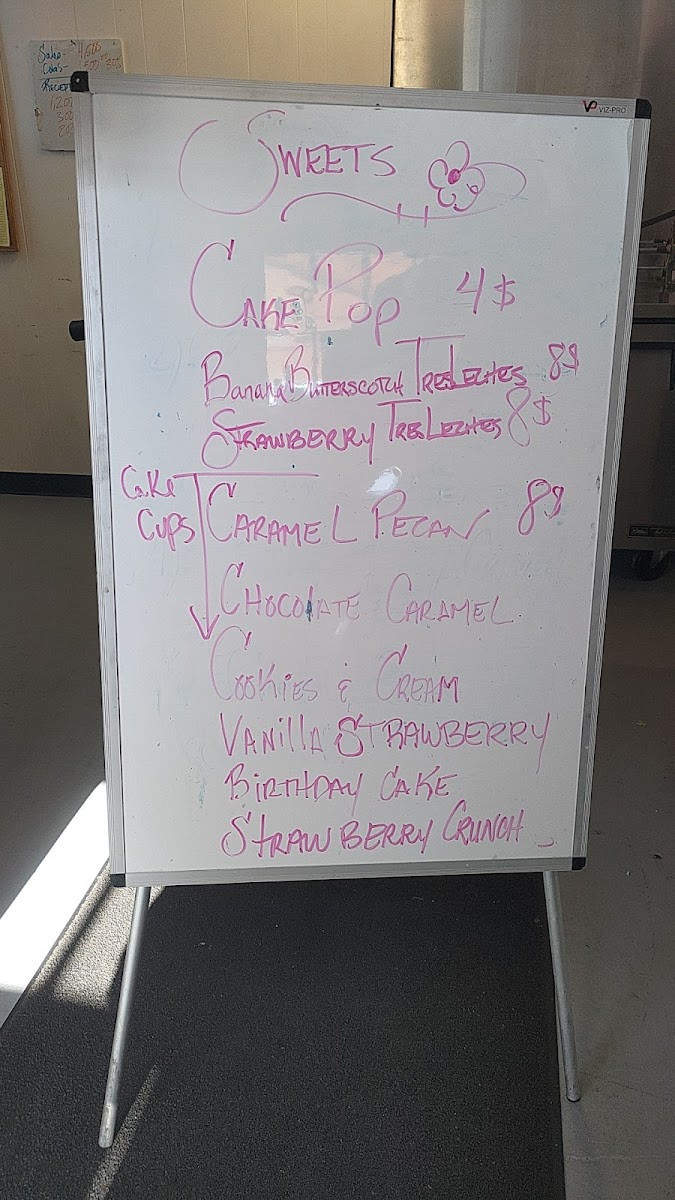 VP VIZ-PRO
SWEETS
CAKE POP 4$
Banana BUTTERSCOTCH TRESLECHES 8$
STRAWBERRY TRESLECHES 8$
Cake Cups
CARAMEL PECAN 8$
CHOCOlATE CARAMEL
COOKiES & CREAM
VANillA STRAWBERRY
BiRTHDAY CAKE
STRAWBERRY CRUNCH